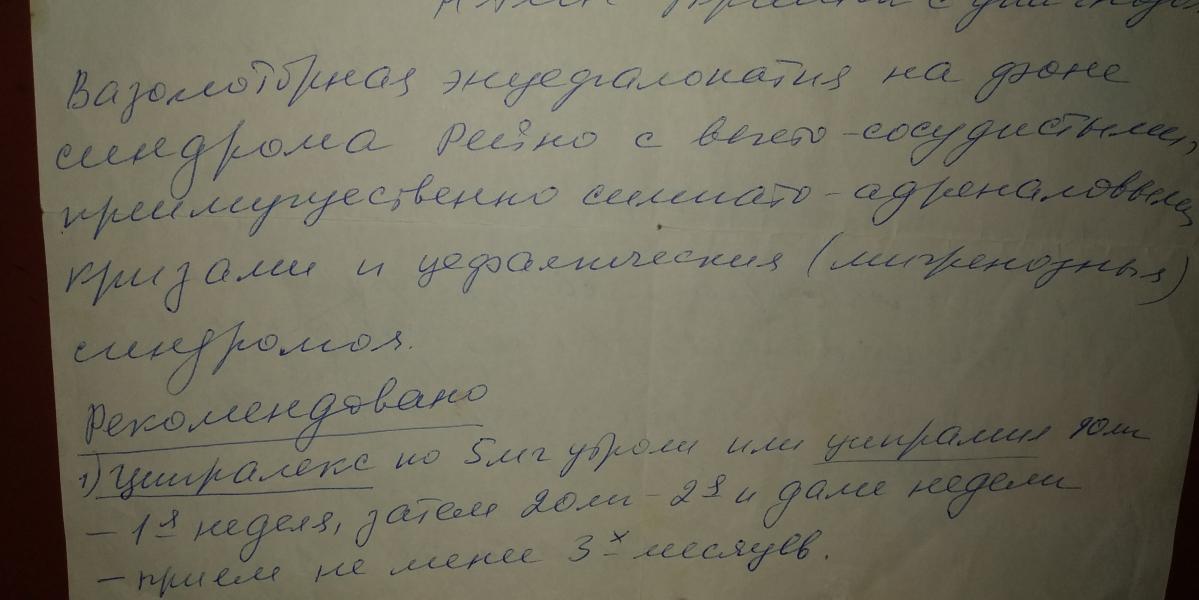 Вазомоторная энцефалопатия на фоне
синдрома Рейно с вегето-сосудистыми,
преимущественно симпато-адреналовыми
кризами и цефалгическим (мигренозным)
синдромом.
Рекомендовано
1) Ципралекс по 5мг утром или ципрамил 10мг
- 1я неделя, затем 20мг - 2я и далее недели
- прием не менее 3х месяцев.